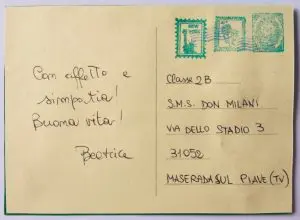 Con affetto e
simpatia!
Buona vita!
Beatrice
Classe 2B
S.M.S. DON MILANI
VIA DELLO STADIO 3
31052
MASERADA SUL PIAVE (TV)